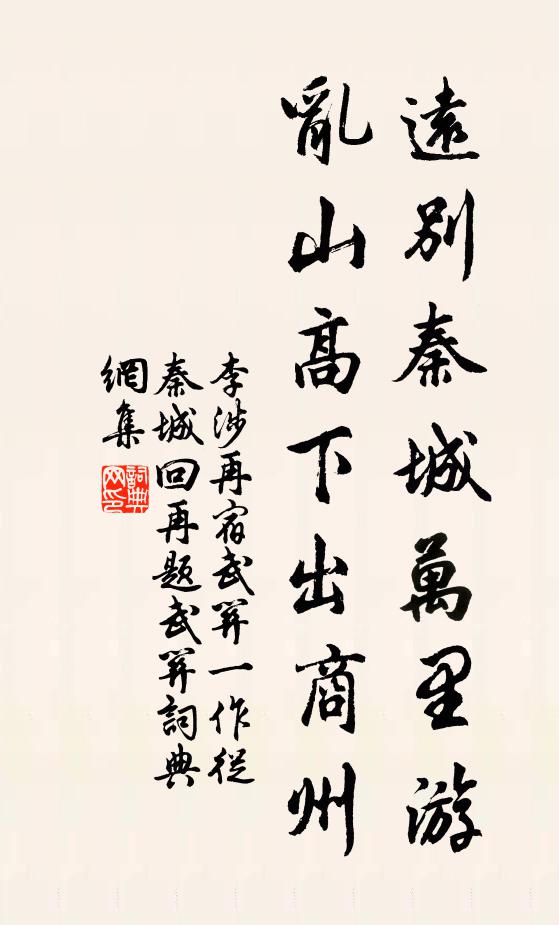 遠別秦城萬里游
亂山高下出商州
李涉再宿武關一作從
秦城回再題武關詞典
網集
詞典
网印